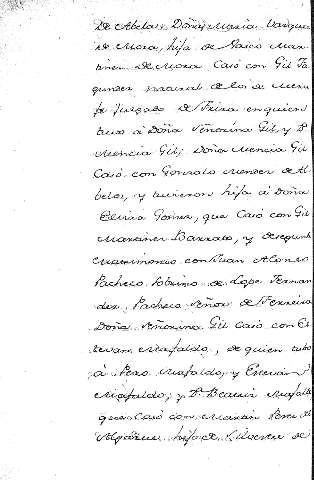 de Abela; Doña Maria Vazquez
de Mora, hija de Paio Mar-
tinez de Mora Casó con Gil
natural de los de Men
de Feira en quien
tuvo á Doña Señorina Gil, y D.
Mencia Gil; Doña Mencia Gil
Casó con Gonzalo Mendez de A
belos, y tuvieron hija á Doña
Elvira Gomez, que Casó con Gil
Martinez Barroto, y desegundo
matrimonio con Juan Alonso
Pacheco Sobrino de Lope Fernan
dez Pacheco Señor de Ferreira
Doña Señorina Gil Casó con Es
tevan Mafaldo, de quien tubo
á Pero Mafaldo, y Estevan
Mafaldo; y D. Beatriz Mafalde
que Casó con Martin Perez de
hija de Silvestre de